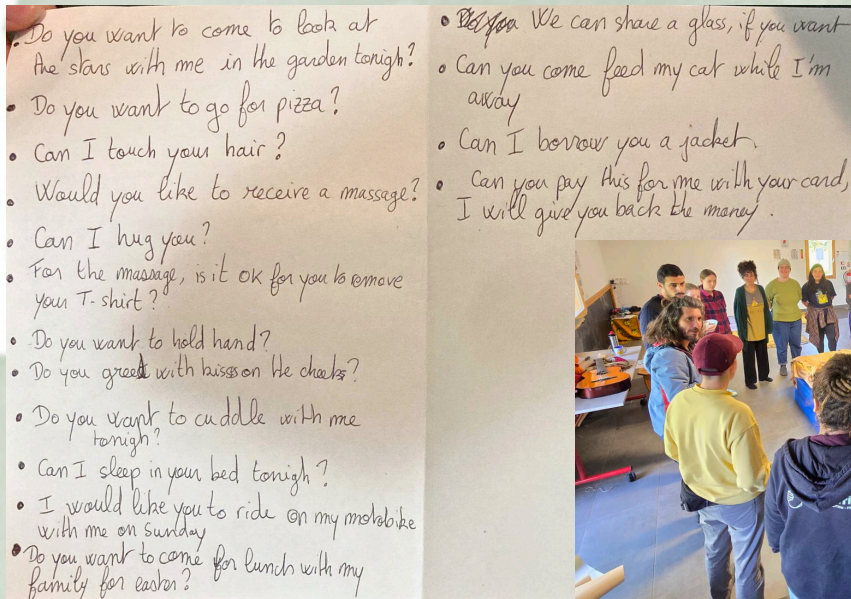 • Do you want to come to look at
the stars with me in the garden tonigh?
• Do you want to go for pizza?
• Can I touch your hair?
• Would you like to receive a massage?
• Can I hug you?
• For the massage, is it ok for you to remove
your T-shirt?
• Do you want to hold hand?
• Do you greet with kisses on the cheeks?
• Do you want to cuddle with me
tonigh?
• Can I sleep in your bed tonigh?
• I would like you to ride on my motobike
with me on sunday
• Do you want to come for lunch with my
family for easter?
• We can share a glass, if you want
• Can you come feed my cat while I'm
away
• Can I borrow you a jacket.
• Can you pay this for me with your card,
I will give you back the money.